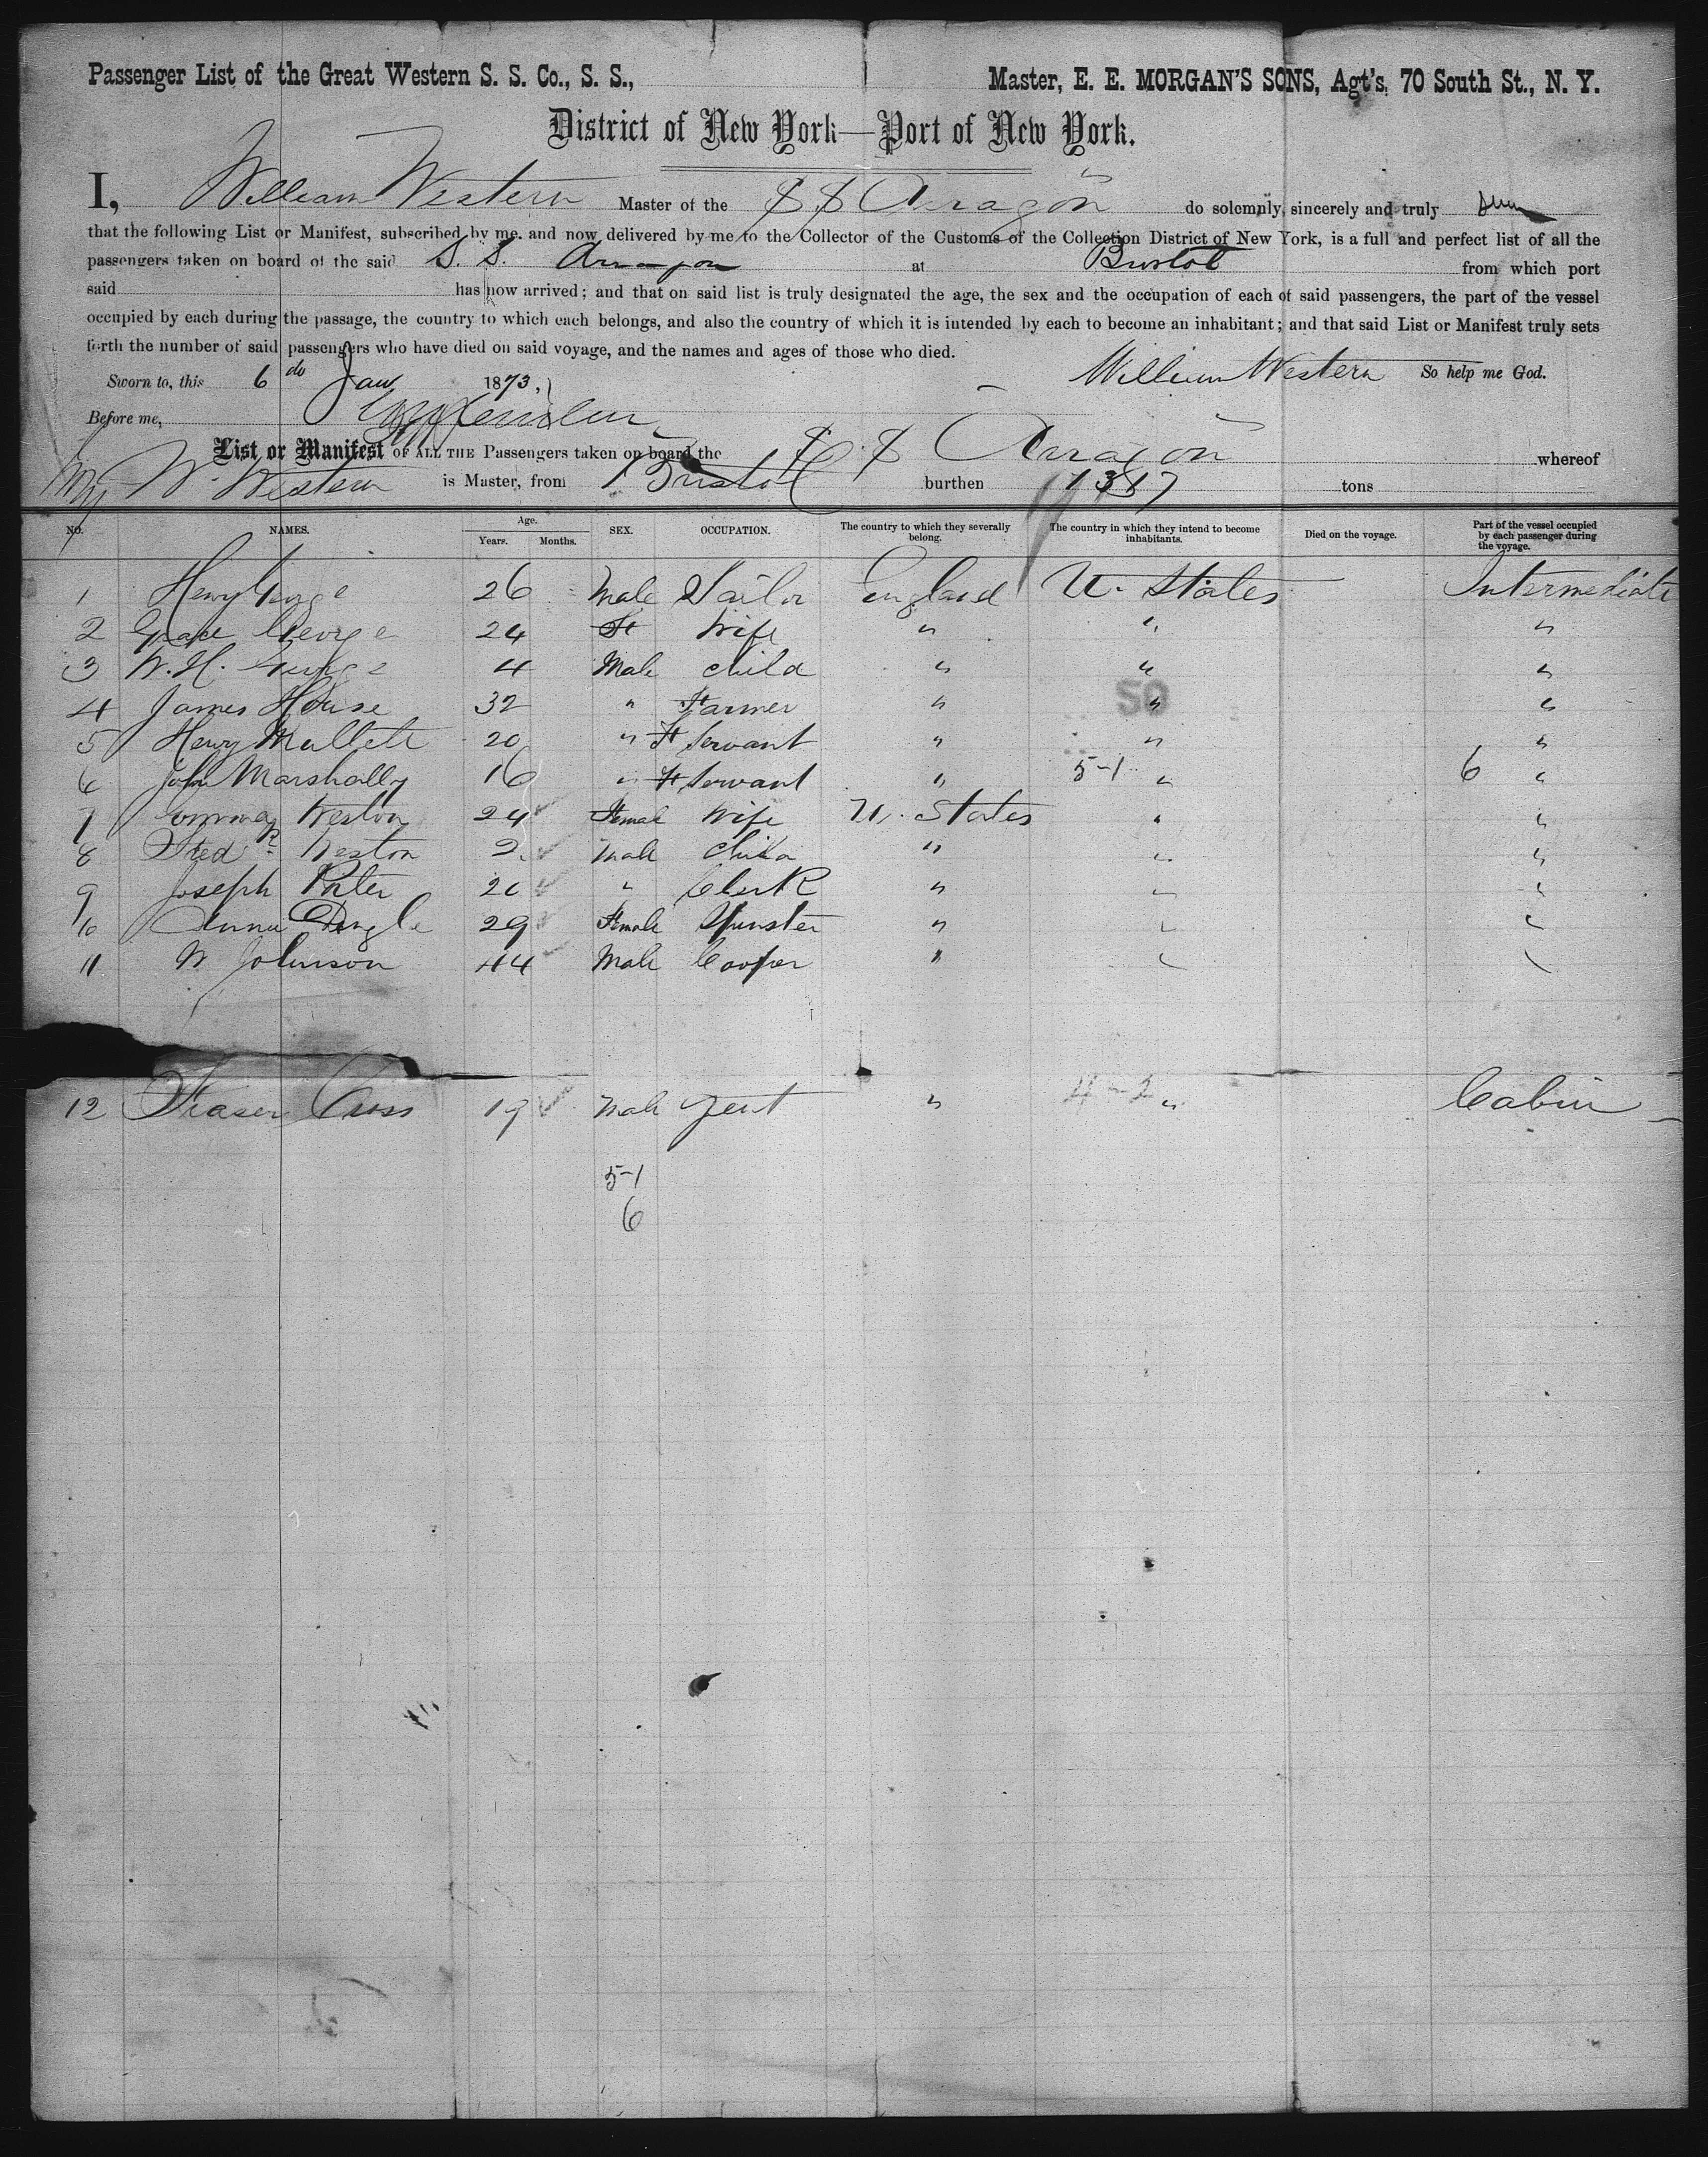 Passenger List of the Great Western S. S. Co., S. S., Master, E. E. MORGAN'S SONS, Agt's, 70 South St., N. Y.
District of New York—Port of New York.
I, William Western Master of the SS Arragon do solemnly, sincerely and truly
that the following List or Manifest, subscribed by me, and now delivered by me to the Collector of the Customs of the Collection District of New York, is a full and perfect list of all the
passengers taken on board of the said S. S. Arragon at Bristol from which port
said has now arrived; and that on said list is truly designated the age, the sex and the occupation of each of said passengers, the part of the vessel
occupied by each during the passage, the country to which each belongs, and also the country of which it is intended by each to become an inhabitant; and that said List or Manifest truly sets
forth the number of said passengers who have died on said voyage, and the names and ages of those who died.
Sworn to, this 6 Jan 1873, William Western So help me God.
Before me,
List or Manifest OF ALL THE Passengers taken on board the SS Arragon whereof
W. Western is Master, from Bristol burthen 1317 tons
NO. NAMES. Age. Years. Months. SEX. OCCUPATION. The country to which they severally belong. The country in which they intend to become inhabitants. Died on the voyage. Part of the vessel occupied by each passenger during the voyage.
1 Henry George 26 Male Sailor England U. States Intermediate
2 Grace George 24 Fe Wife " " "
3 W. H. George 4 Male child " " "
4 James House 32 " Farmer " " "
50
5 Henry Mullett 20 " F Servant " " "
6 John Marshally 16 " F Servant " 5-1 " 6 "
7 Emma Weston 24 Female Wife U. States " "
8 Fred R Weston 2 Male Child " " "
9 Joseph Porter 26 " Clerk " " "
10 Anna Dingle 29 Female Spinster " " "
11 W Johnson 44 Male Cooper " " "
12 Fraser Cuss 19 Male Gent " 4-2 " Cabin
5-1
6